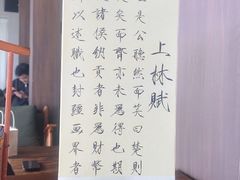 上林賦
是公聽然而笑曰楚則
矣而齊亦未爲得也夫
諸侯納貢者非爲財幣
以述職也封疆畫界者